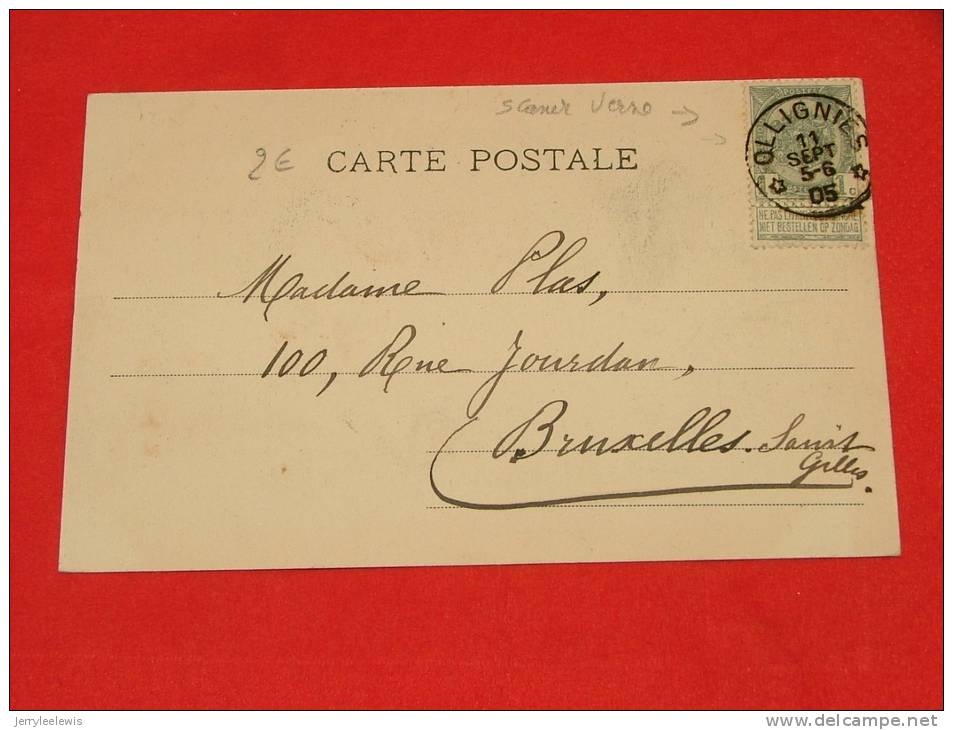 scaner Verso →
2€ CARTE POSTALE
POSTES
OLLIGNIES
11
SEPT
5-6
05
1 c
NE PAS
NIET BESTELLEN OP ZONDAG
Madame Plas,
100, Rue Jourdan,
Bruxelles. Saint
Gilles.
Jerryleelewis
www.delcampe.net